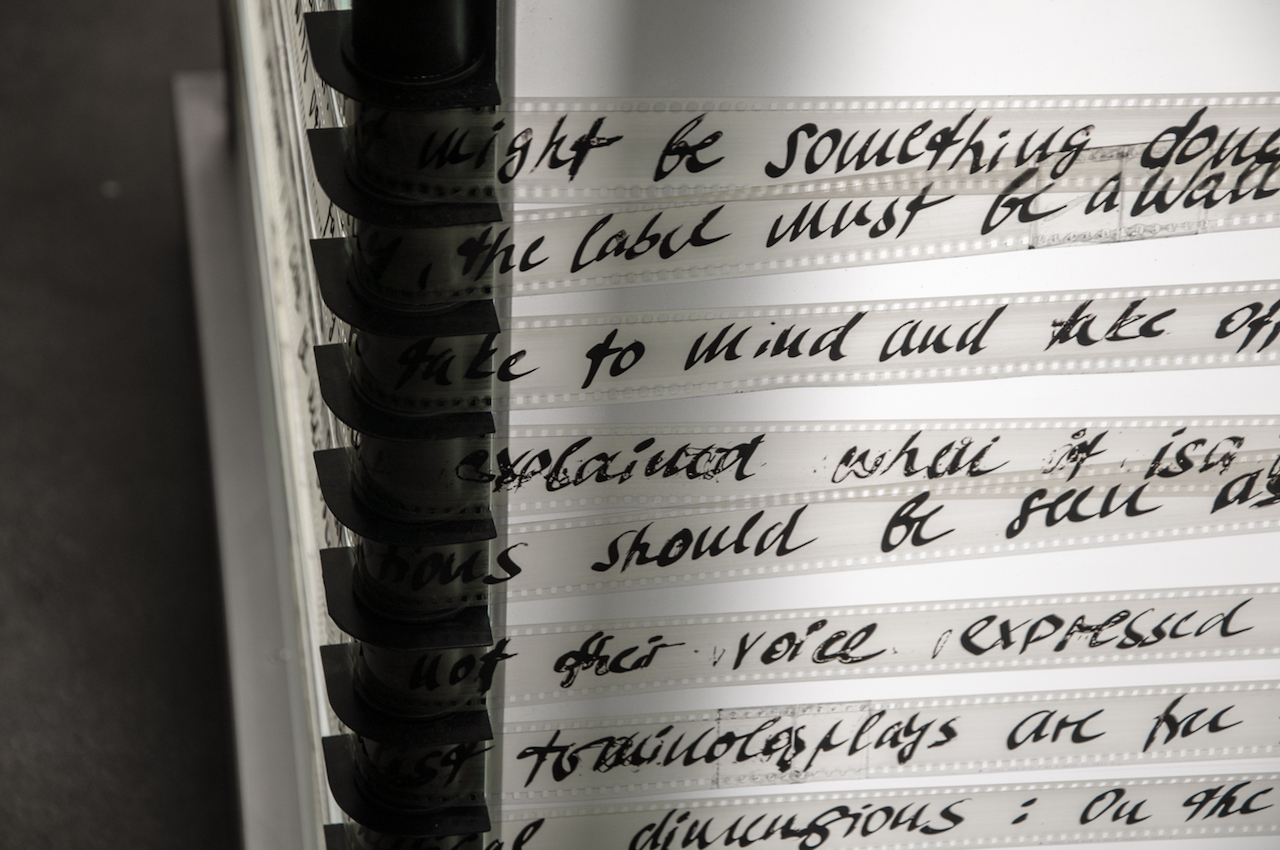 might be something done
, the label must be a wall
take to mind and take off
explained when it is a
tions should be seen as
not their voice expressed
plays are free
dimensions : On the